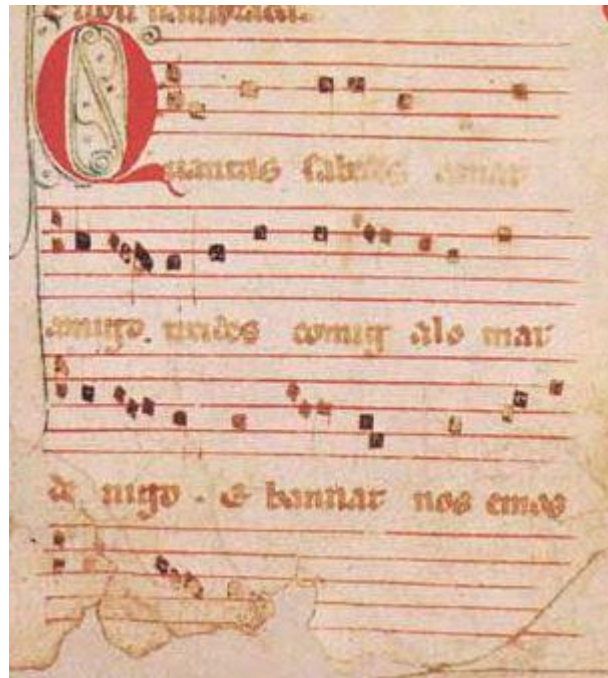 Quantas sabedes amar
amigo. treides comig alo mar
de uigo. E bannar nos emos